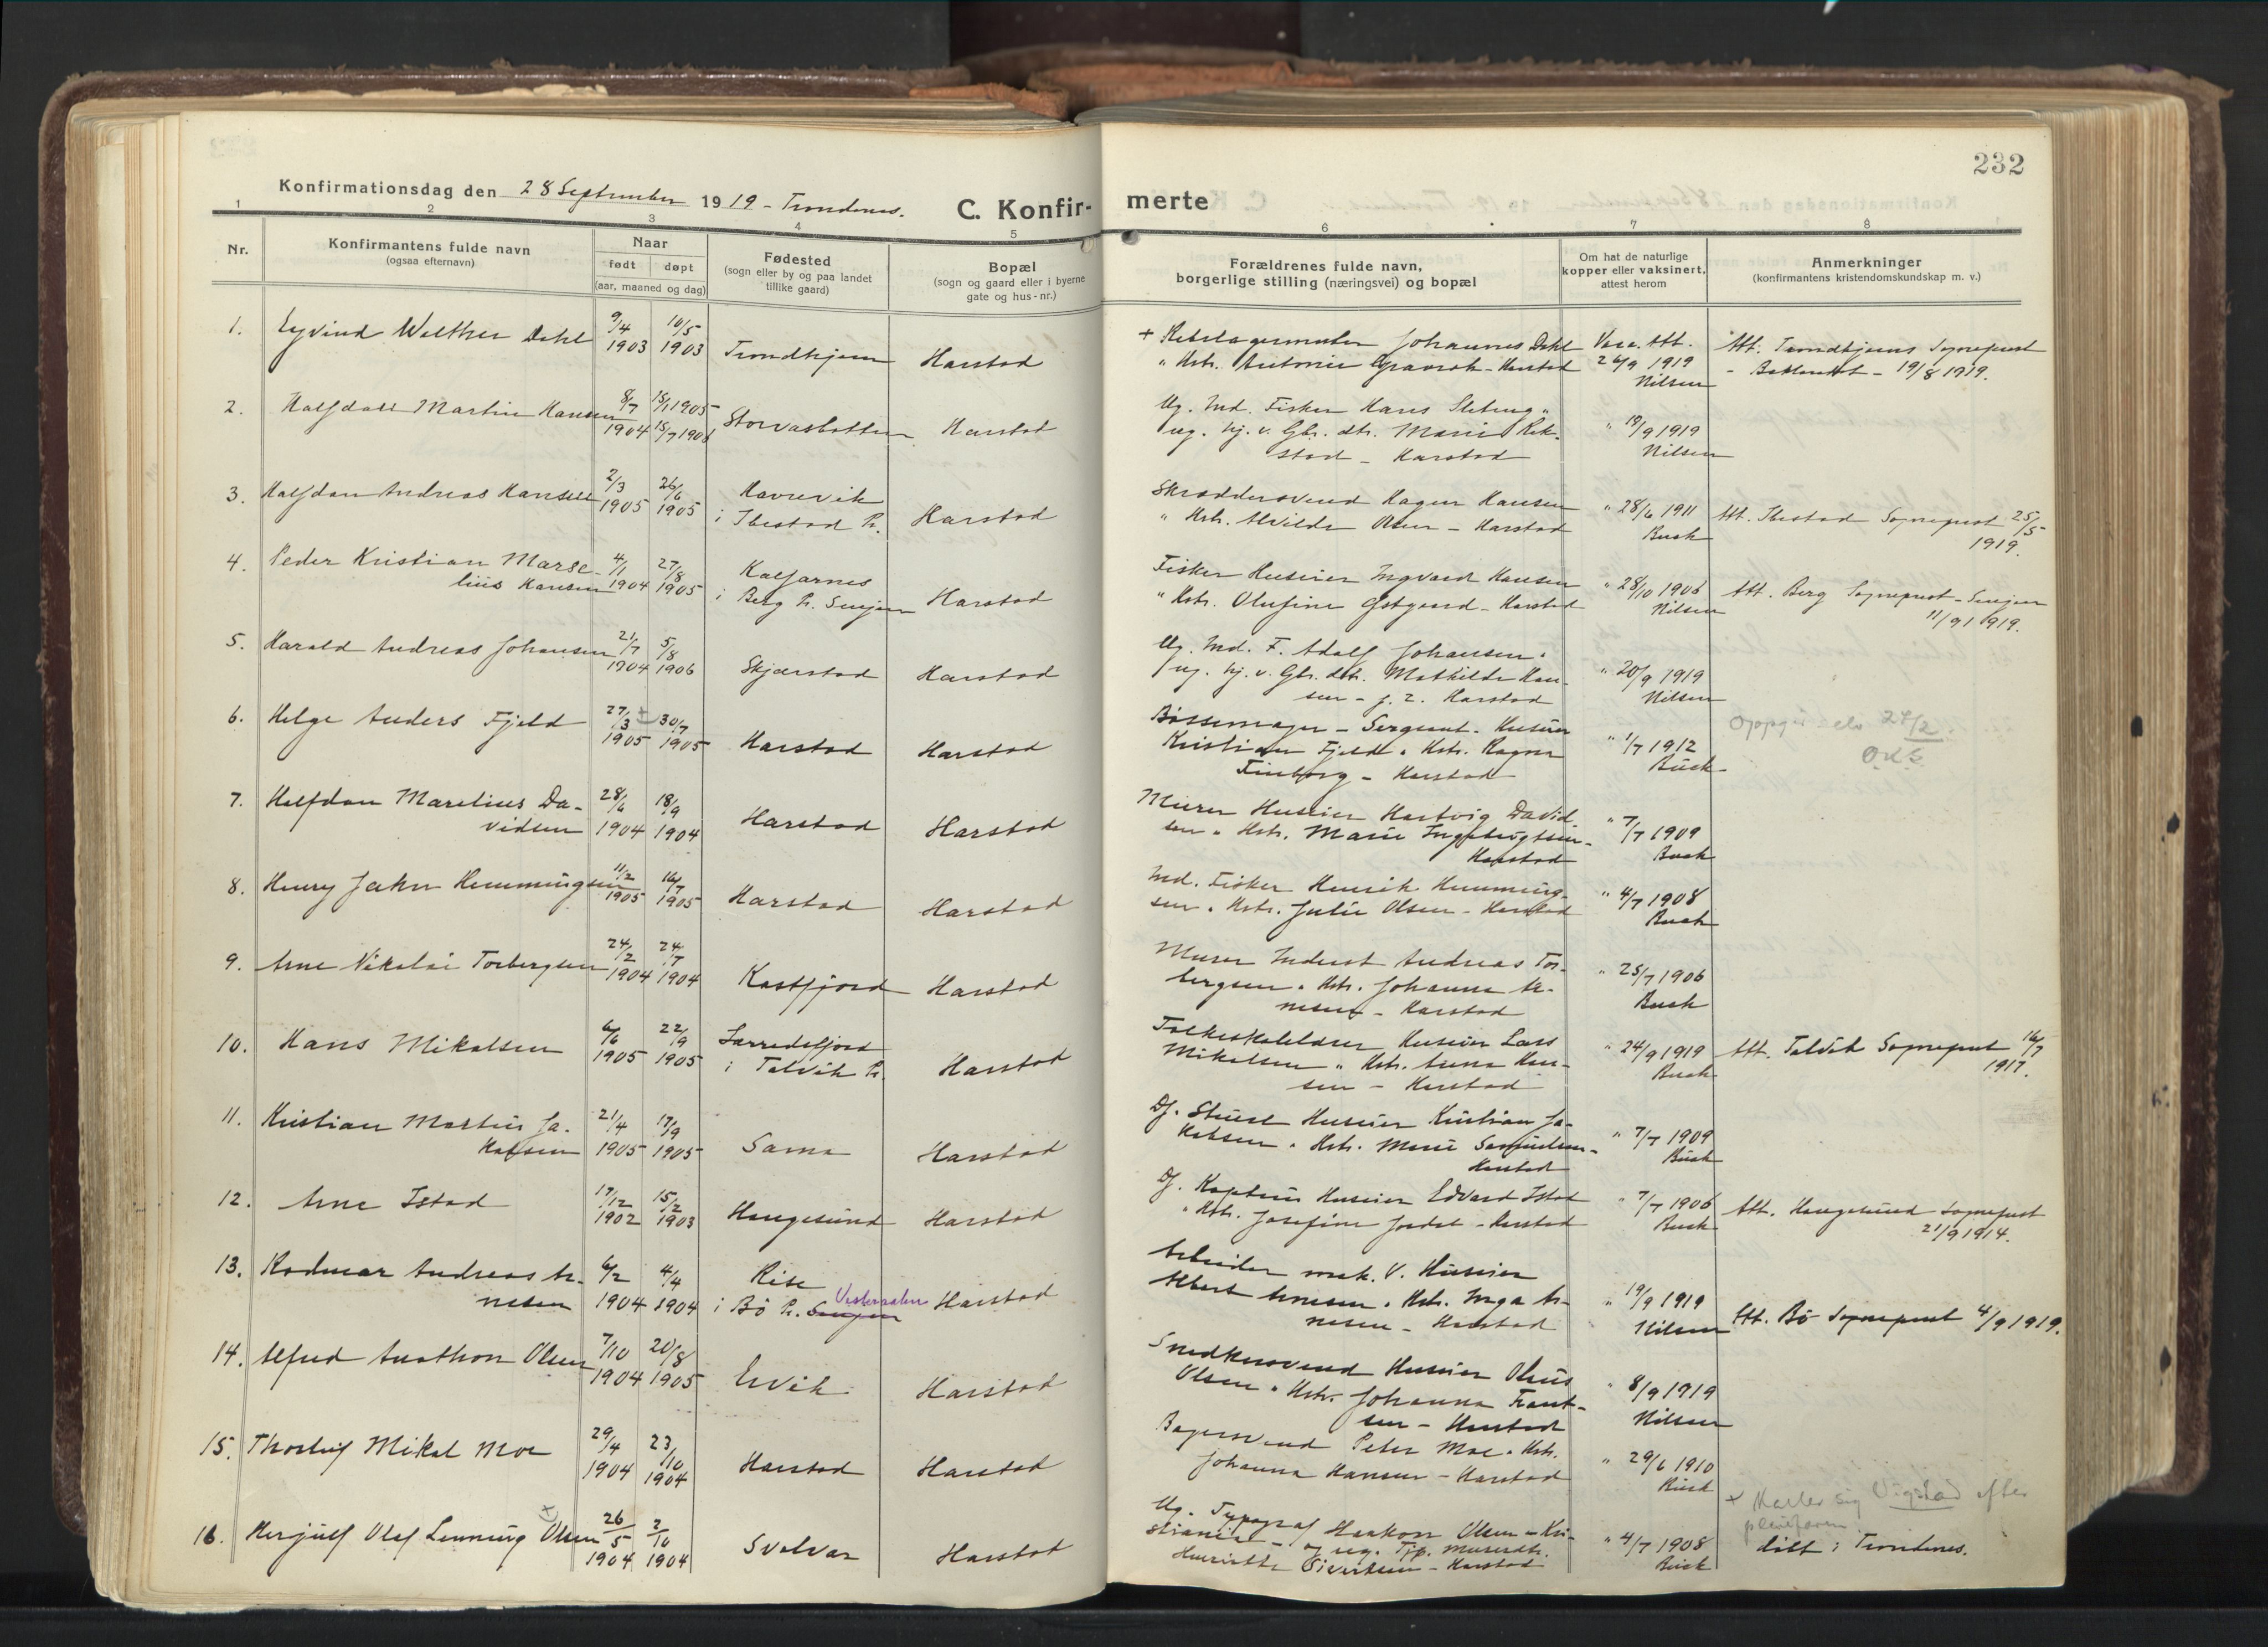 232
Konfirmationsdag den 28 September 1919 - Trondenes.
C. Konfir-
merte
1 2 3 4 5 6 7 8
Nr.
Konfirmantens fulde navn
(ogsaa efternavn)
Naar
født døpt
(aar, maaned og dag)
Fødested
(sogn eller by og paa landet
tillike gaard)
Bopæl
(sogn og gaard eller i byerne
gate og hus-nr.)
Forældrenes fulde navn,
borgerlige stilling (næringsvei) og bopæl
Om hat de naturlige
kopper eller vaksinert,
attest herom
Anmerkninger
(konfirmantens kristendomskundskap m. v.)
1. Eyvind Walther Dahl 9/4 1903 10/5 1903 Trondhjem Harstad
+ Johannes Dahl
" Hstr. Antonie - Harstad
Vacc. Att. 26/9 1919 Nilsen
Att. Trondhjems Sogneprest
- Baklandet - 19/8 1919.
2. Halfdan Martin Hansen 8/7 1904 15/7 1906 Harstad
Ug. Ind. Fisker Hans
ug. hj. v. Gbr. dtr. Marie Rik-
stad - Harstad
" 18/9 1919 Nilsen
3. Halfdan Andreas Hansen 2/3 1905 26/6 1905 Havnvik
i Ibestad P. Harstad
Skræddersvend Hagen Hansen
" Hstr. Alvilde Olsen - Harstad
" 28/6 1911 Buck
Att. Ibestad Sogneprest 25/5
1919.
4. Peder Kristian Marse-
lius Hansen 4/1 1904 27/8 1905
i Berg P. Senjen Harstad
Fisker Huseier Ingvard Hansen
" Hstr. Olufine - Harstad
" 28/10 1906 Nilsen
Att. Berg Sogneprest - Senjen
11/9 1919.
5. Harald Andreas Johansen 21/7 1904 5/8 1906 Skjærstad Harstad
Ug. Ind. F. Adolf Johansen.
ug. hj. v. Gbr. dtr. Mathilde Han-
sen - g. 2. Harstad
" 20/9 1919 Nilsen
6. Helge Anders Fjeld 27/3 1905 30/7 1905 Harstad Harstad
Bøssemager - Sergeant. Huseier
Kristian Fjeld. Hstr. Ragna
- Harstad
" 1/7 1912 Buck
24/2
7. Halfdan Marelius Da-
vidsen 28/6 1904 18/9 1904 Harstad Harstad
Murer Huseier Hartvig David-
sen. Hstr. Marie
Harstad
" 7/7 1909 Buck
8. Henry John Hemmingsen 11/2 1905 16/7 1905 Harstad Harstad
Ind. Fisker Henrik Hemming-
sen. Hstr. Julie Olsen - Harstad
" 4/7 1908 Buck
9. Arne Nikolai Torbergsen 24/2 1904 24/7 1904 Kastfjord Harstad
Murer Inderst Andreas Tor-
bergsen. Hstr. Johanna Ar-
nesen - Harstad
" 25/7 1906 Buck
10. Hans Mikalsen 6/6 1905 22/9 1905
i Talvik P. Harstad
Folkeskolelærer Huseier Lars
Mikalsen. Hstr. Anna Han-
sen - Harstad
" 24/9 1919 Buck
Att. Talvik Sogneprest 16/7
1917.
11. Kristian Martin Ja-
kobsen 21/4 1905 17/9 1905 Sama Harstad
Df. Stuert Huseier Kristian Ja-
kobsen. Hstr. Marie Samuelsen -
Harstad
" 7/7 1909 Buck
12. Arne Istad 17/12 1902 15/2 1903 Haugesund Harstad
Df. Kaptein Huseier Edvard Istad
" Hstr. Josefine - Harstad
" 7/7 1906 Buck
Att. Haugesund Sogneprest
21/9 1914.
13. Rodmar Andreas Ar-
nesen 6/2 1904 4/4 1904 Rise
i Bø P. Senjen Vesteraalen Harstad
Arbeider mek. V. Huseier
Albert Arnesen. Hstr. Inga Ar-
nesen - Harstad
" 19/9 1919 Nilsen
Att. Bø Sogneprest 4/9 1919.
14. Alfred Anathon Olsen 7/10 1904 20/8 1905 Ervik Harstad
Snedkersvend Huseier Olaus
Olsen. Hstr. Johanna Frant-
sen - Harstad
" 8/9 1919 Nilsen
15. Thorleif Mikal Moe 29/4 1904 23/10 1904 Harstad Harstad
Bagersvend Peter Moe. Hstr.
Johanna Hansen - Harstad
" 29/6 1910 Buck
16. Herjulf Olaf Lenning Olsen 26/5 1904 2/10 1904 Svolvær Harstad
Ug. Typograf Haakon Olsen - Kri-
stiania - og ug. Tjp. Murerdtr.
Henriette Sivertsen - Harstad
" 4/7 1908 Buck
+ Kaller sig Vigstad efter
pleiefaren
døbt i Trondenes.